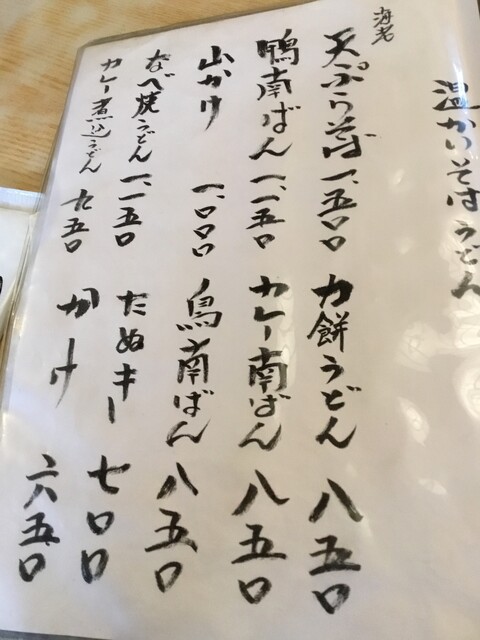 温かいそばうどん
海老
天ぷらそば 一、五〇〇
鴨南ばん 一、一五〇
山かけ 一、〇〇〇
なべ焼うどん 一、一五〇
カレー煮込うどん 九五〇
力餅うどん 八五〇
カレー南ばん 八五〇
鳥南ばん 八五〇
たぬキー 七〇〇
かけ 六五〇